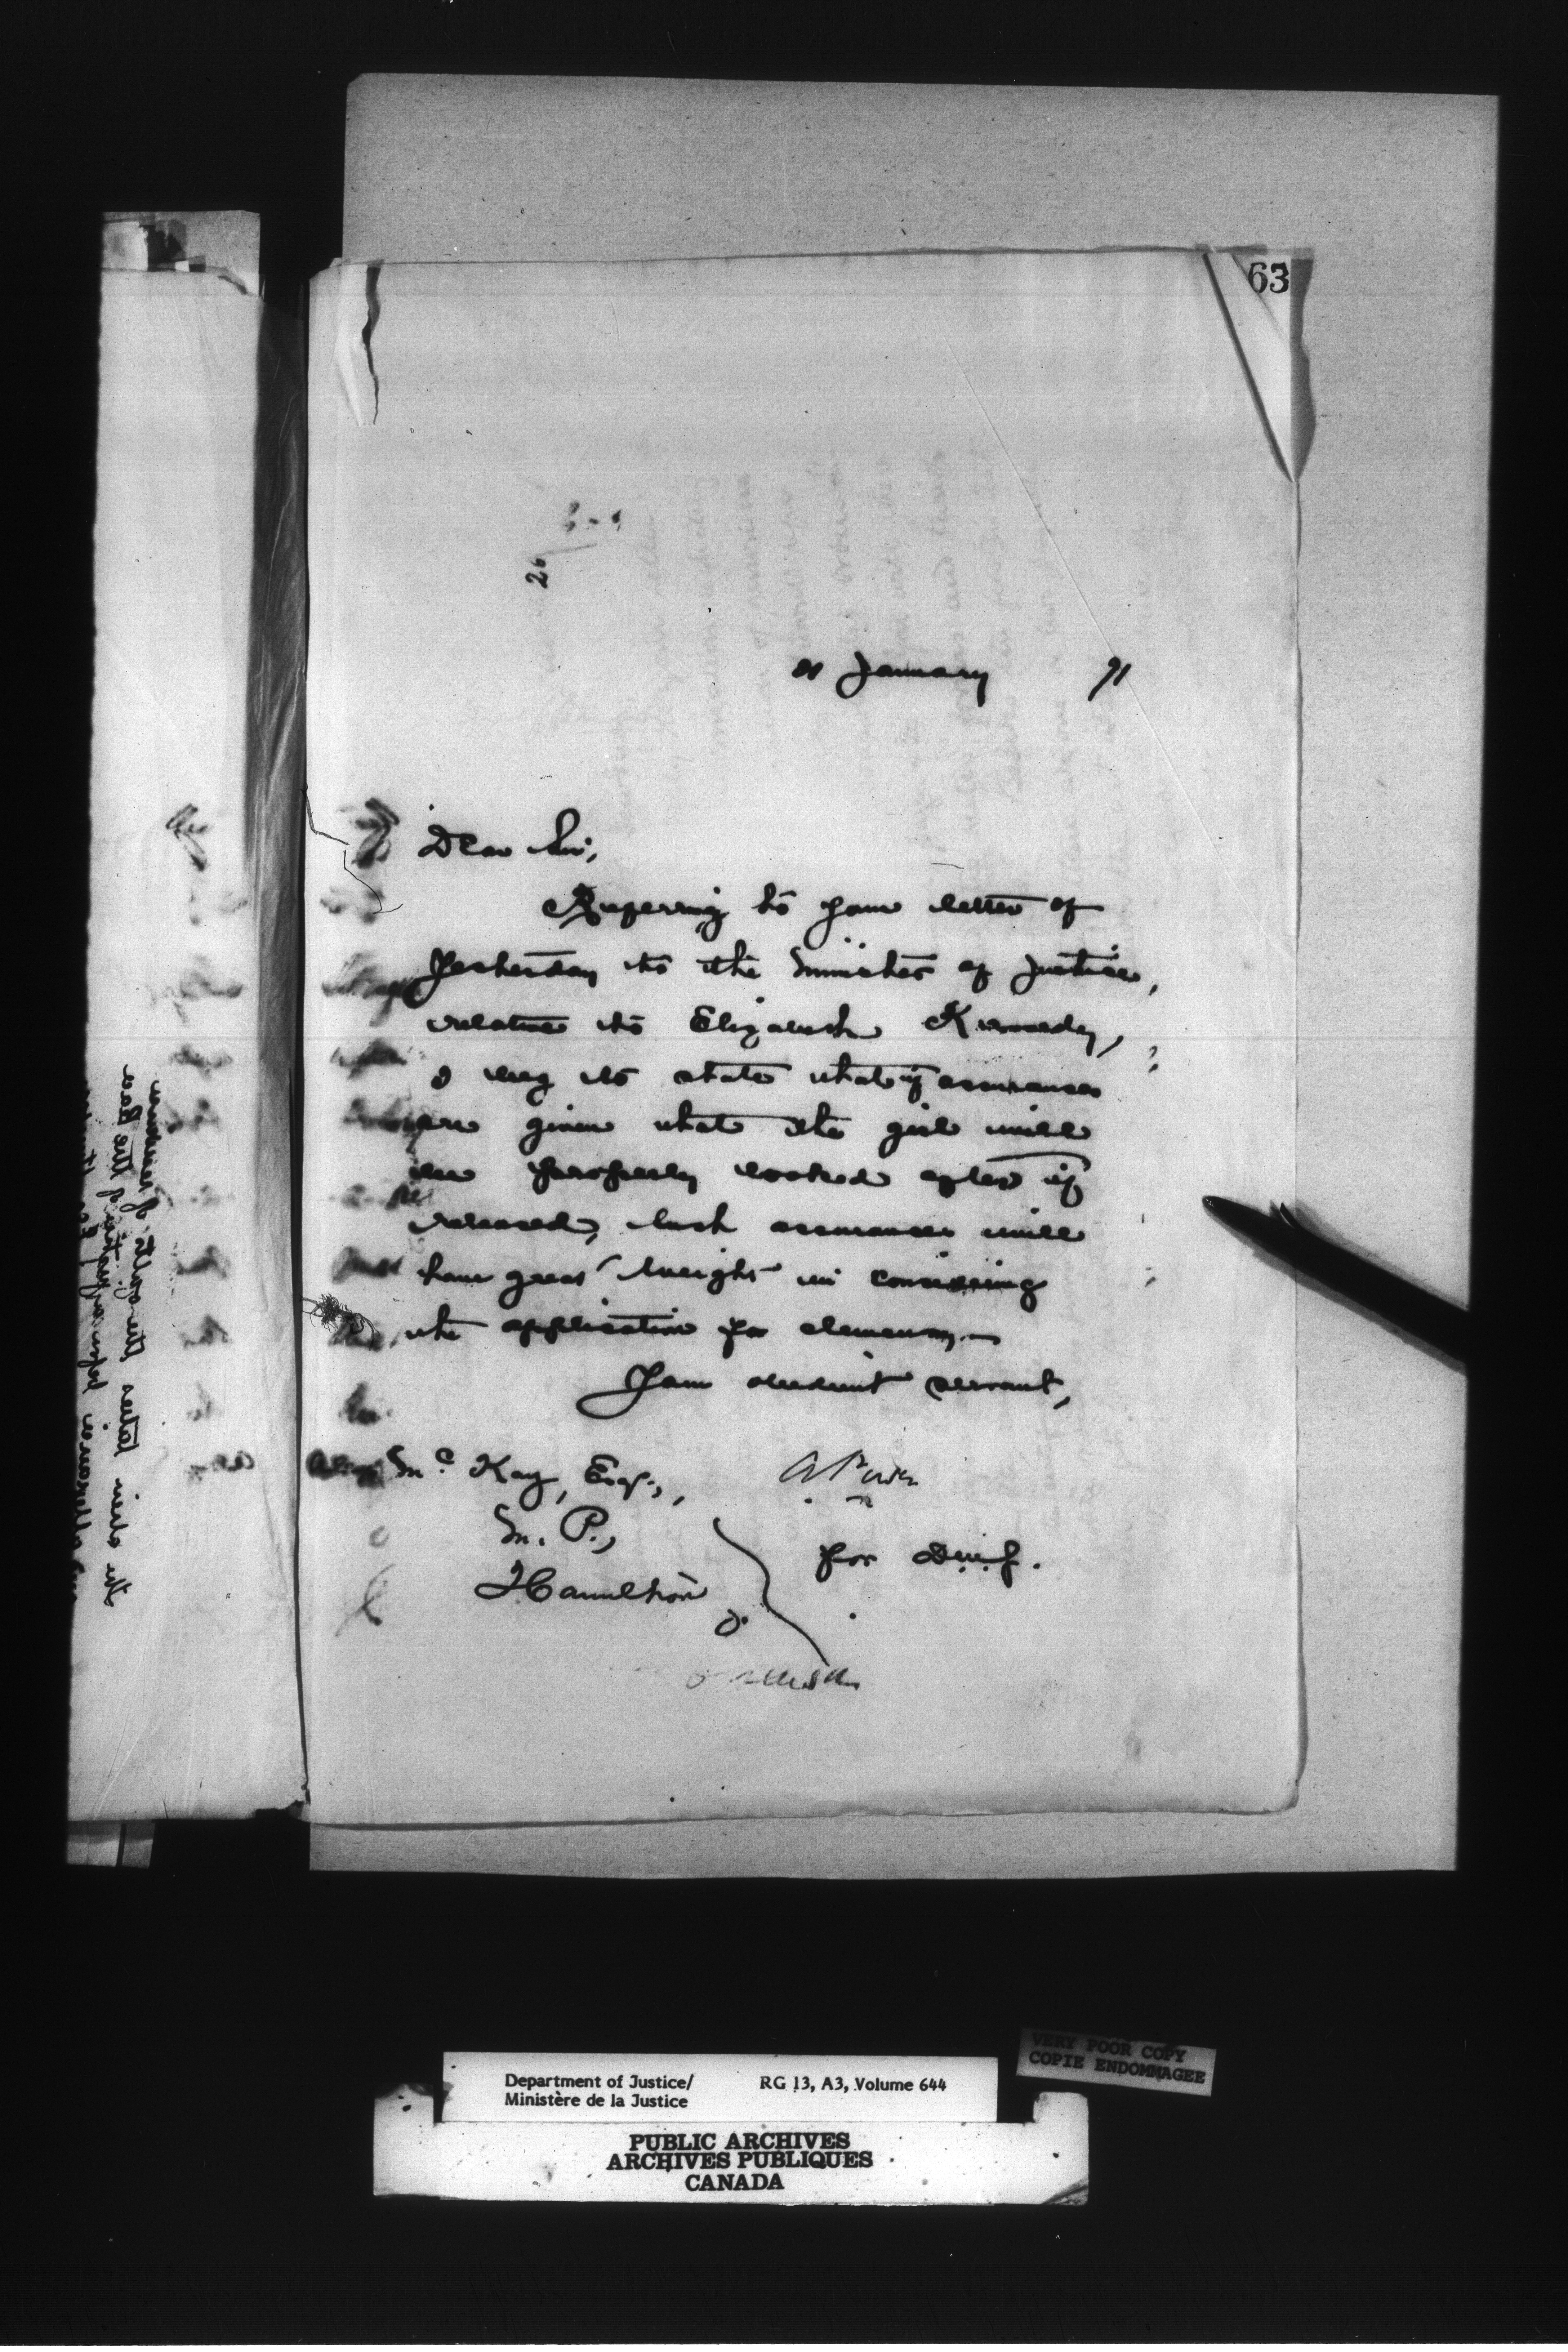 63
January 91
Dear Sir,
Referring to your letter of
yesterday to the Minister of Justice,
relative to Elizabeth Kennedy,
I beg to state that if assurances
are given that the girl will
be properly looked after if
released, such assurances will
have great weight in considering
the application for clemency.
Your obedient servant,
A Power
for D.M.J.
McKay, Esq.,
M. P.,
Hamilton
O.
VERY POOR COPY
COPIE ENDOMMAGEE
Department of Justice/ RG 13, A3, Volume 644
Ministère de la Justice
PUBLIC ARCHIVES
ARCHIVES PUBLIQUES
CANADA